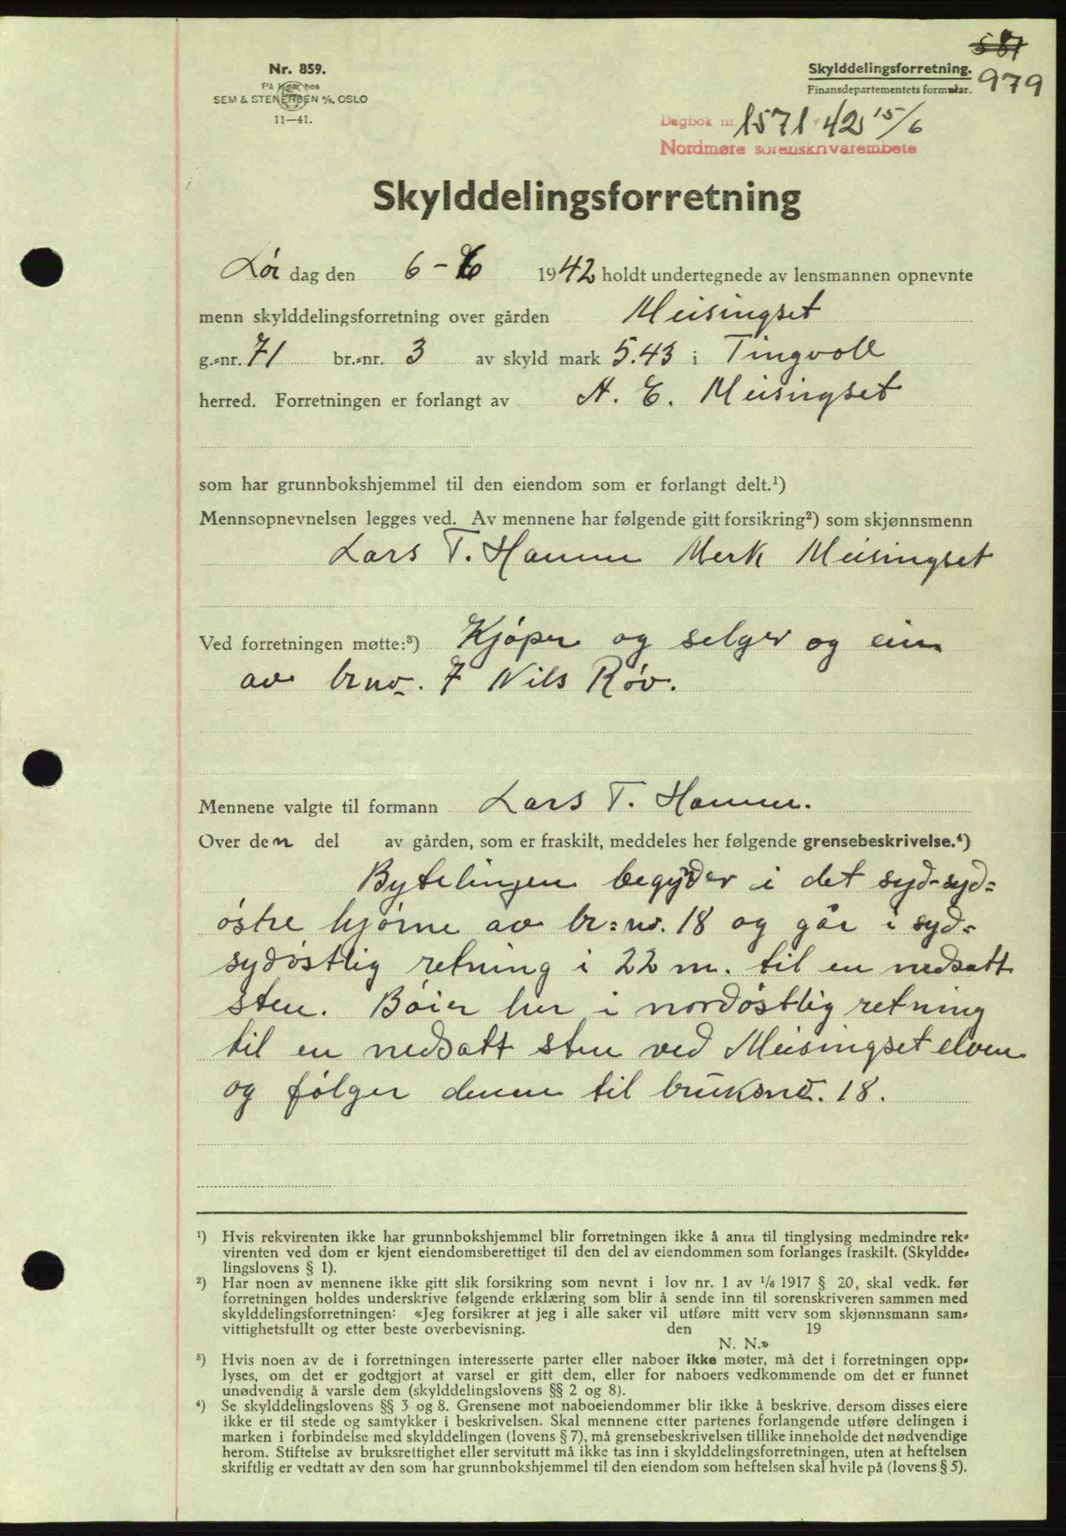 587
979
Nr. 859.
På lager hos
SEM & STENERSEN A/S, OSLO
11—41.
Skylddelingsforretning.
Finansdepartementets formular.
Dagbok nr. 1571 42 15/6
Nordmøre sorenskriverembete
Skylddelingsforretning
Lör dag den 6 - 6 1942 holdt undertegnede av lensmannen opnevnte
menn skylddelingsforretning over gården Meisingset
g.-nr. 71 br.-nr. 3 av skyld mark 5.43 i Tingvoll
herred. Forretningen er forlangt av A. E. Meisingset
som har grunnbokshjemmel til den eiendom som er forlangt delt.¹)
Mennsopnevnelsen legges ved. Av mennene har følgende gitt forsikring²) som skjønnsmenn
Lars T. Hamm Merk Meisingset
Ved forretningen møtte:³) Kjöper og selger og eier
av br.nr. 7 Nils Röv.
Mennene valgte til formann Lars T. Hamm.
Over den del av gården, som er fraskilt, meddeles her følgende grensebeskrivelse.⁴)
Bytelingen begynder i det syd-syd-
östre hjörne av br:nr. 18 og går i syd-
sydöstlig retning i 22 m. til en nedsatt
sten. Böier her i nordöstlig retning
til en nedsatt sten ved Meisingset elven
og fölger denne til bruksnr. 18.
¹) Hvis rekvirenten ikke har grunnbokshjemmel blir forretningen ikke å anta til tinglysing medmindre rek-
virenten ved dom er kjent eiendomsberettiget til den del av eiendommen som forlanges fraskilt. (Skyldde-
lingslovens § 1).
²) Har noen av mennene ikke gitt slik forsikring som nevnt i lov nr. 1 av 1/6 1917 § 20, skal vedk. før
forretningen holdes underskrive følgende erklæring som blir å sende inn til sorenskriveren sammen med
skylddelingsforretningen: «Jeg forsikrer at jeg i alle saker vil utføre mitt verv som skjønnsmann sam-
vittighetsfullt og etter beste overbevisning. den 19
N. N.»
³) Hvis noen av de i forretningen interesserte parter eller naboer ikke møter, må det i forretningen opp-
lyses, om det er godtgjort at varsel er gitt dem, eller for naboers vedkommende om det er funnet
unødvendig å varsle dem (skylddelingslovens §§ 2 og 8).
⁴) Se skylddelingslovens §§ 3 og 8. Grensene mot naboeiendommer blir ikke å beskrive, dersom disses eiere
ikke er til stede og samtykker i beskrivelsen. Skal mennene etter partenes forlangende utføre delingen i
marken i forbindelse med skylddelingen (lovens § 7), må grensebeskrivelsen tillike inneholde det nødvendige
herom. Stiftelse av bruksrettighet eller servitutt må ikke tas inn i skylddelingsforretningen, uten at heftelsen
skriftlig er vedtatt av den som har grunnbokshjemmel til den eiendom som heftelsen skal hvile på (lovens § 5).